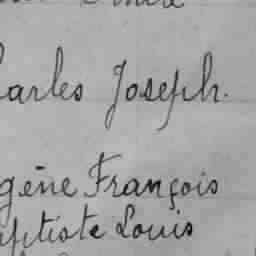 arles Joseph.
gène François
aptiste Louis